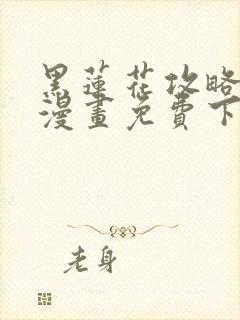 黑莲花攻略
漫畫免費下
老身